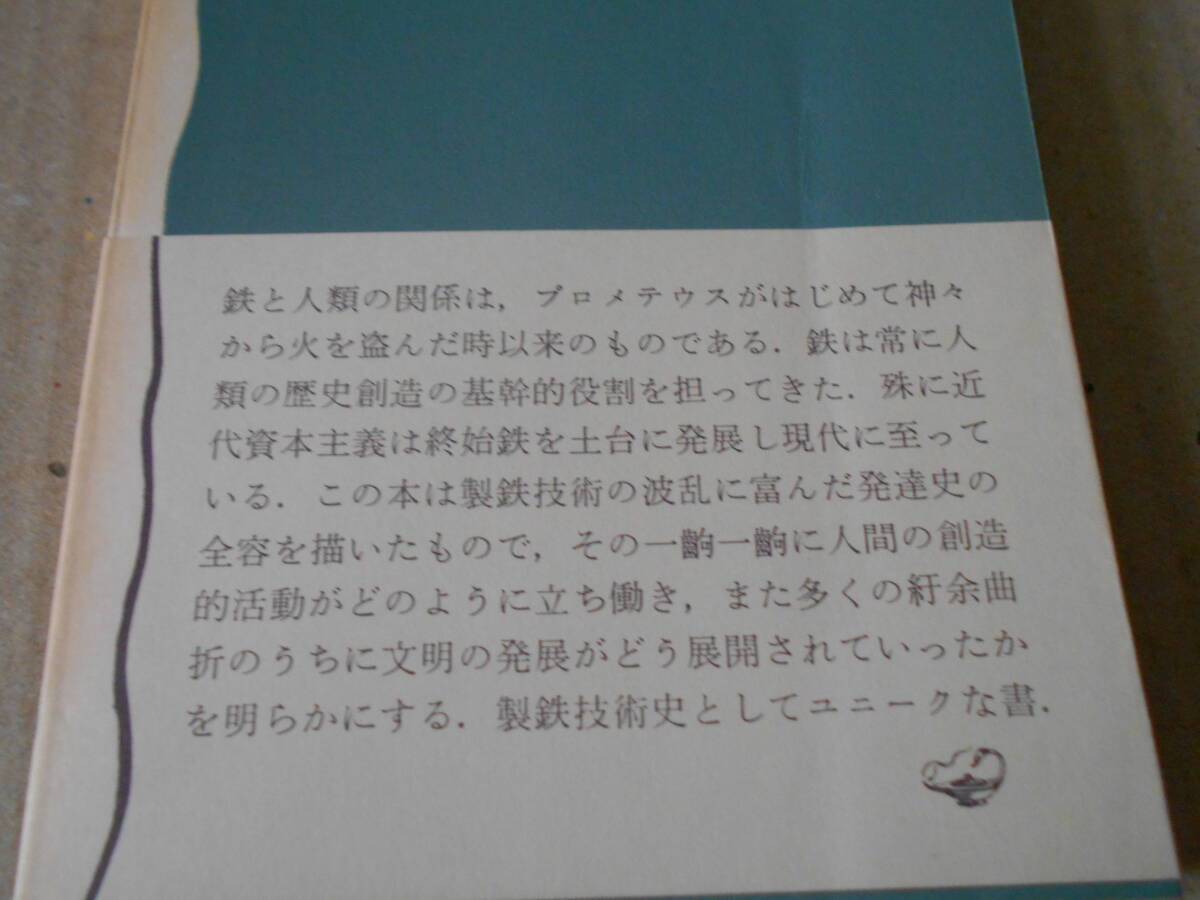 鉄と人類の関係は，プロメテウスがはじめて神々
から火を盗んだ時以来のものである．鉄は常に人
類の歴史創造の基幹的役割を担ってきた．殊に近
代資本主義は終始鉄を土台に発展し現代に至って
いる．この本は製鉄技術の波乱に富んだ発達史の
全容を描いたもので，その一齣一齣に人間の創造
的活動がどのように立ち働き，また多くの紆余曲
折のうちに文明の発展がどう展開されていったか
を明らかにする．製鉄技術史としてユニークな書．